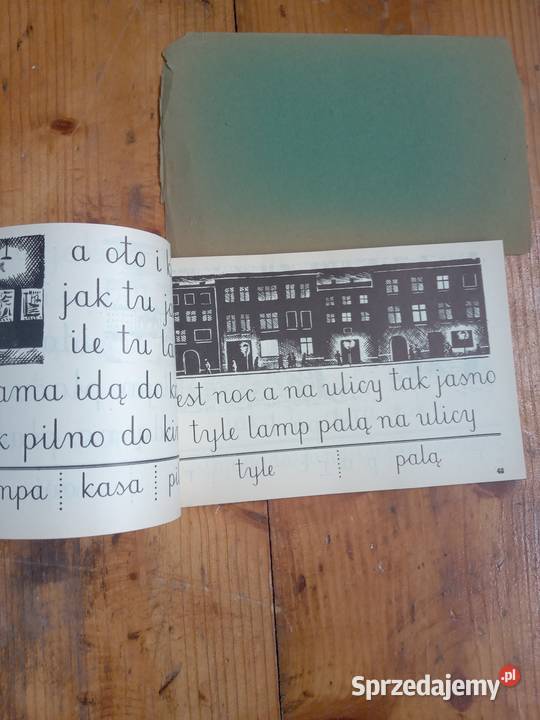 a oto i
jak tu
ile tu
ama idą do
pilno do
mpa kasa
est noc a na ulicy tak jasno
tyle lamp palą na ulicy
tyle palą
Sprzedajemy.pl